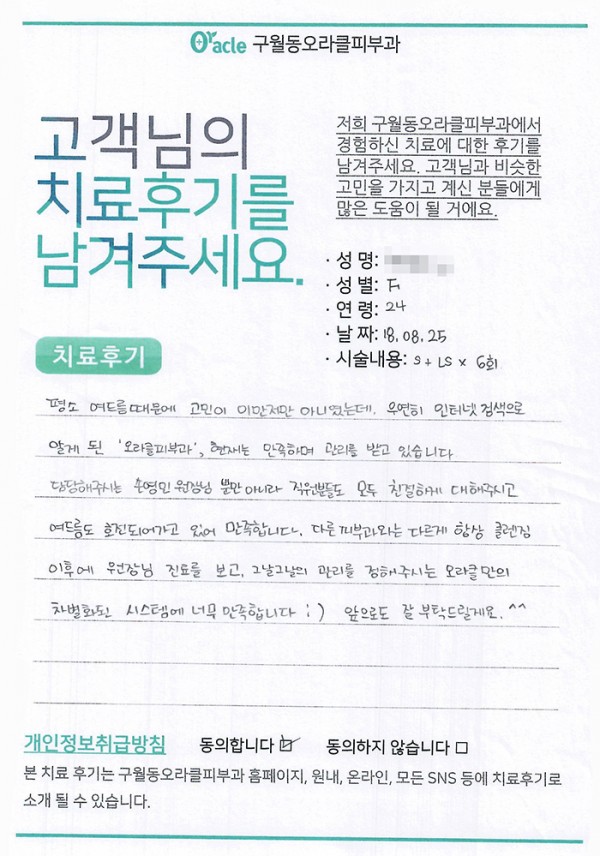 Oracle 구월동오라클피부과
고객님의
치료후기를
남겨주세요.
저희 구월동오라클피부과에서
경험하신 치료에 대한 후기를
남겨주세요. 고객님과 비슷한
고민을 가지고 계신 분들에게
많은 도움이 될 거에요.
· 성 명:
· 성 별: F
· 연 령: 24
· 날 짜: 18.08.25
· 시술내용: S + LS x 6회
치료후기
평소 여드름때문에 고민이 이만저만 아니였는데, 우연히 인터넷 검색으로
알게 된 '오라클피부과', 현재는 만족하며 관리를 받고 있습니다
담당해주시는 손영민 원장님 뿐만 아니라 직원분들도 모두 친절하게 대해주시고
여드름도 호전되어가고 있어 만족합니다. 다른 피부과와는 다르게 항상 클렌징
이후에 원장님 진료를 보고, 그날그날의 관리를 정해주시는 오라클만의
차별화된 시스템에 너무 만족합니다 :) 앞으로도 잘 부탁드릴게요. ^^
개인정보취급방침 동의합니다 ☑ 동의하지 않습니다 □
본 치료 후기는 구월동오라클피부과 홈페이지, 원내, 온라인, 모든 SNS 등에 치료후기로
소개 될 수 있습니다.